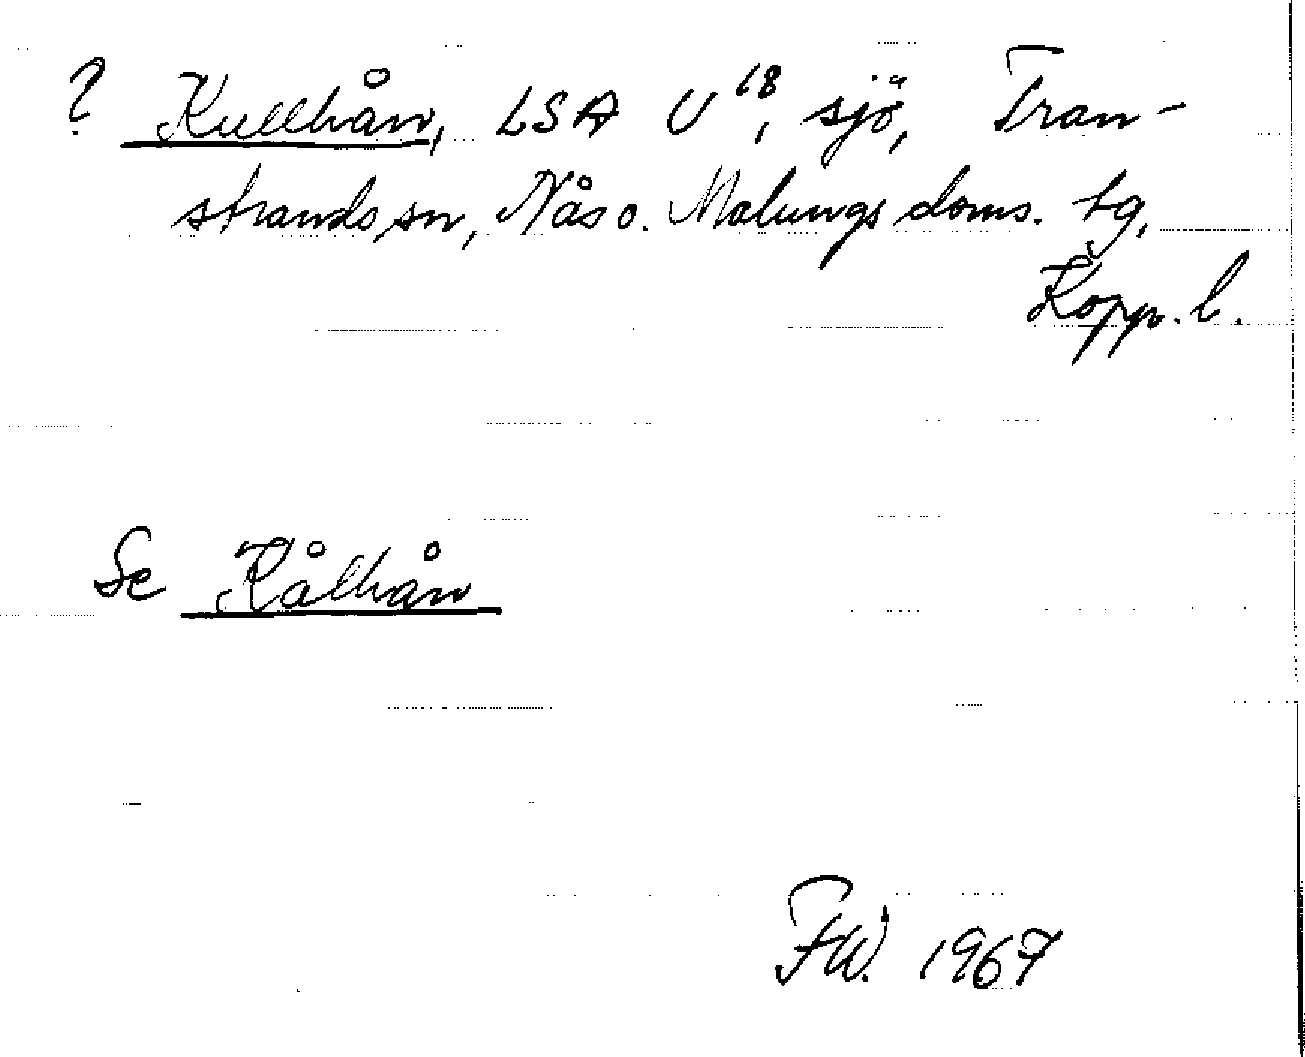 ? Kullhån, LSA U 18, sjö, Tran-
strands sn, Nås o. Malungs doms. tg,
Kopp. l.
Se Kålhån
FW. 1967